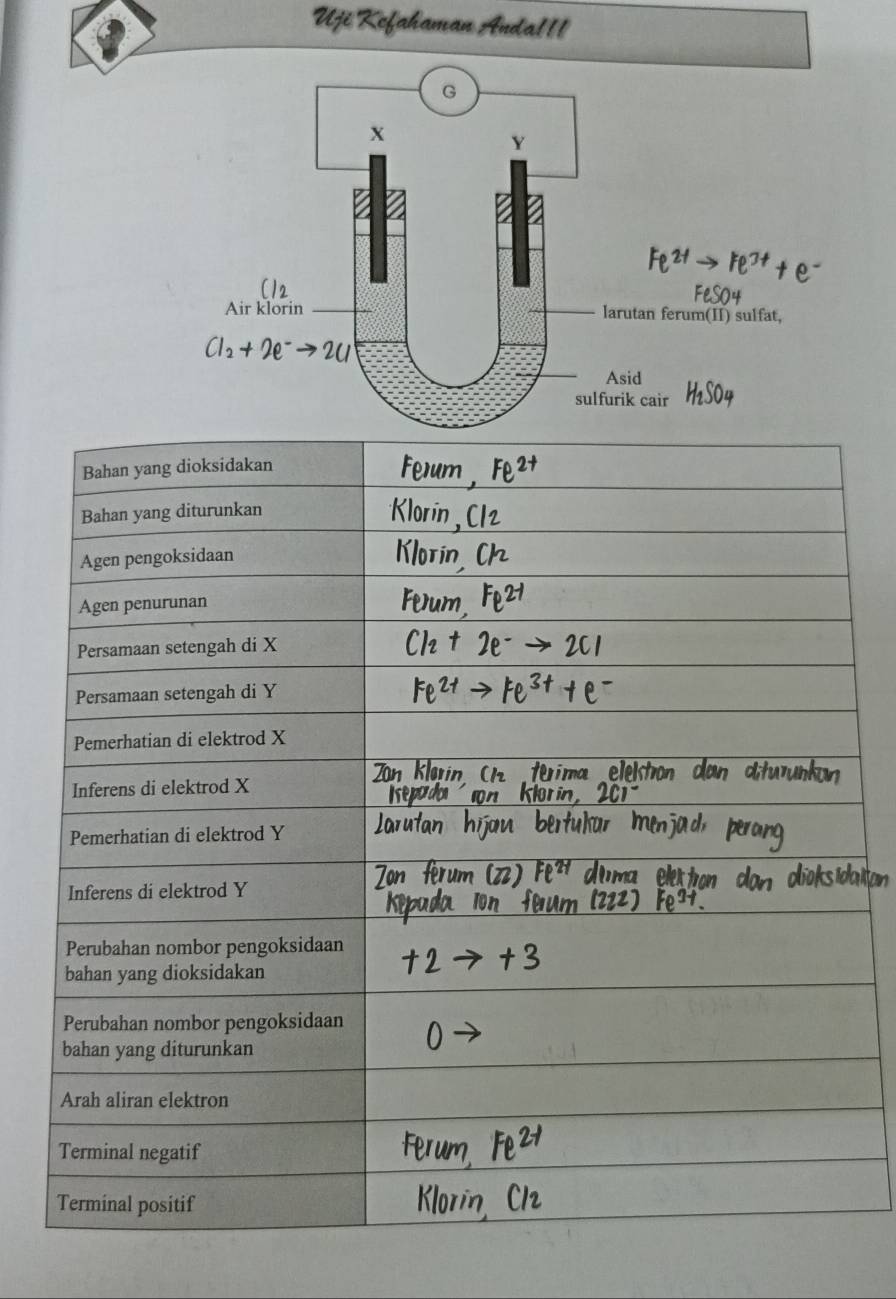 Uji Kefahaman Anda!!!
G
X
Y
Fe²⁺ → Fe³⁺ + e⁻
Cl2
Air klorin
FeSO4
larutan ferum(II) sulfat,
Cl₂ + 2e⁻ → 2Cl
Asid
sulfurik cair H₂SO₄
Bahan yang dioksidakan Ferum, Fe²⁺
Bahan yang diturunkan Klorin, Cl2
Agen pengoksidaan Klorin, Cl2
Agen penurunan Ferum, Fe²⁺
Persamaan setengah di X Cl2 + 2e⁻ → 2Cl
Persamaan setengah di Y Fe²⁺ → Fe³⁺ + e⁻
Pemerhatian di elektrod X
Inferens di elektrod X Ion Klorin, Cl2 terima elektron dan diturunkan
kepada ion klorin, 2Cl⁻
Pemerhatian di elektrod Y Larutan hijau bertukar menjadi perang
Inferens di elektrod Y Ion ferum (II) Fe²⁺ elektron dan dioksidakan
kepada ion ferum (III) Fe³⁺.
Perubahan nombor pengoksidaan
bahan yang dioksidakan +2 → +3
Perubahan nombor pengoksidaan
bahan yang diturunkan 0 →
Arah aliran elektron
Terminal negatif Ferum, Fe²⁺
Terminal positif Klorin, Cl2